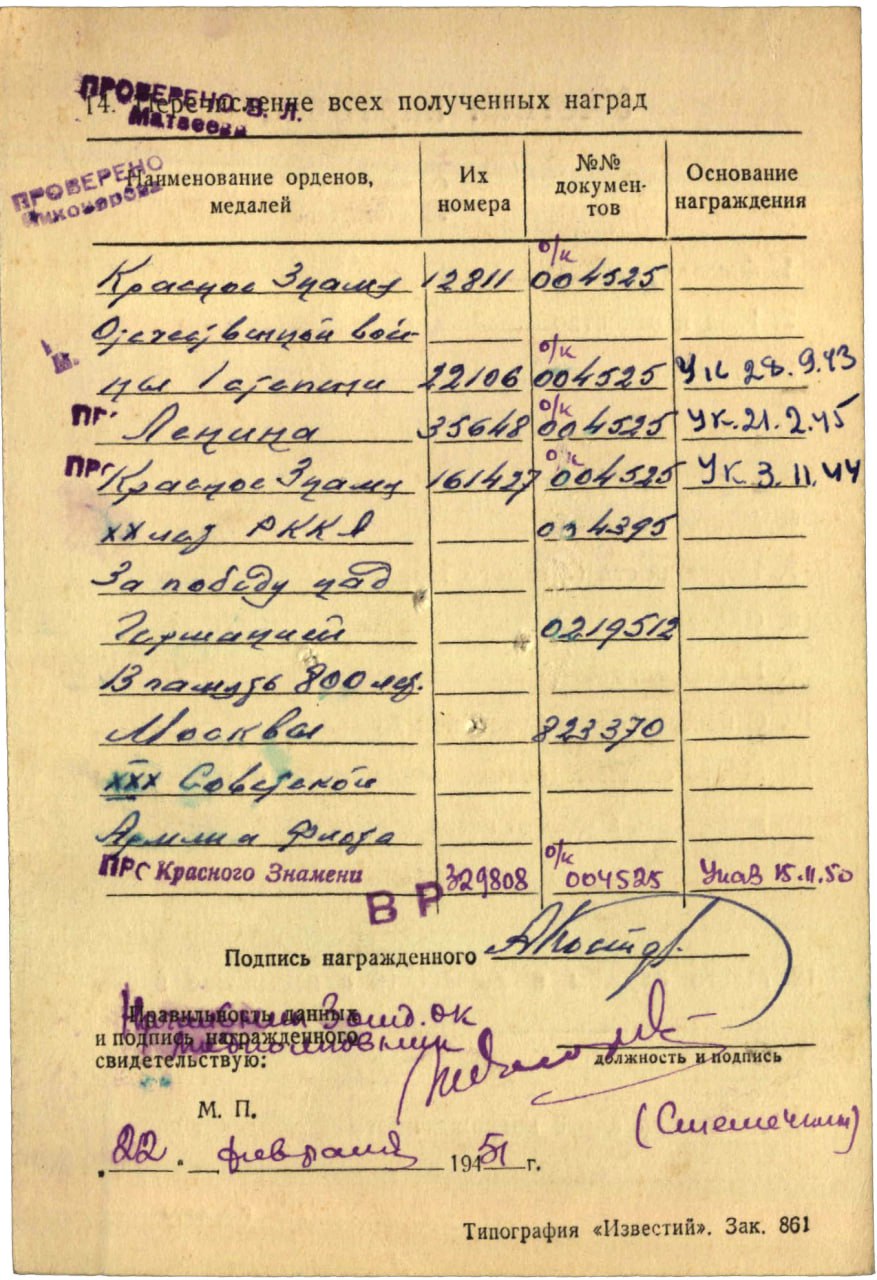 ПРОВЕРЕНО В. Л.
Матвеева
14. Перечисление всех полученных наград
ПРОВЕРЕНО
Наименование орденов, медалей
Их номера
№№ докумен-тов
Основание награждения
Красное Знамя 12811 о/к 004525
Отечественной вой-
ны 1 степени 22106 о/к 004525 Ук 28.9.43
ПР Ленина 35648 о/к 004525 Ук.21.2.45
ПРО Красное Знамя 161427 о/к 004525 Ук 3.11.44
XX лет РККА 004395
За победу над
Германией 0219512
В память 800 лет.
Москвы 823370
XXX Советской
Армии и Флота
ПРО Красного Знамени 329808 о/к 004525 Указ 15.11.50
ВР
Подпись награжденного
Правильность данных
и подпись награжденного
свидетельствую:
должность и подпись
М. П.
22 февраля 1951 г.
Типография «Известий». Зак. 861